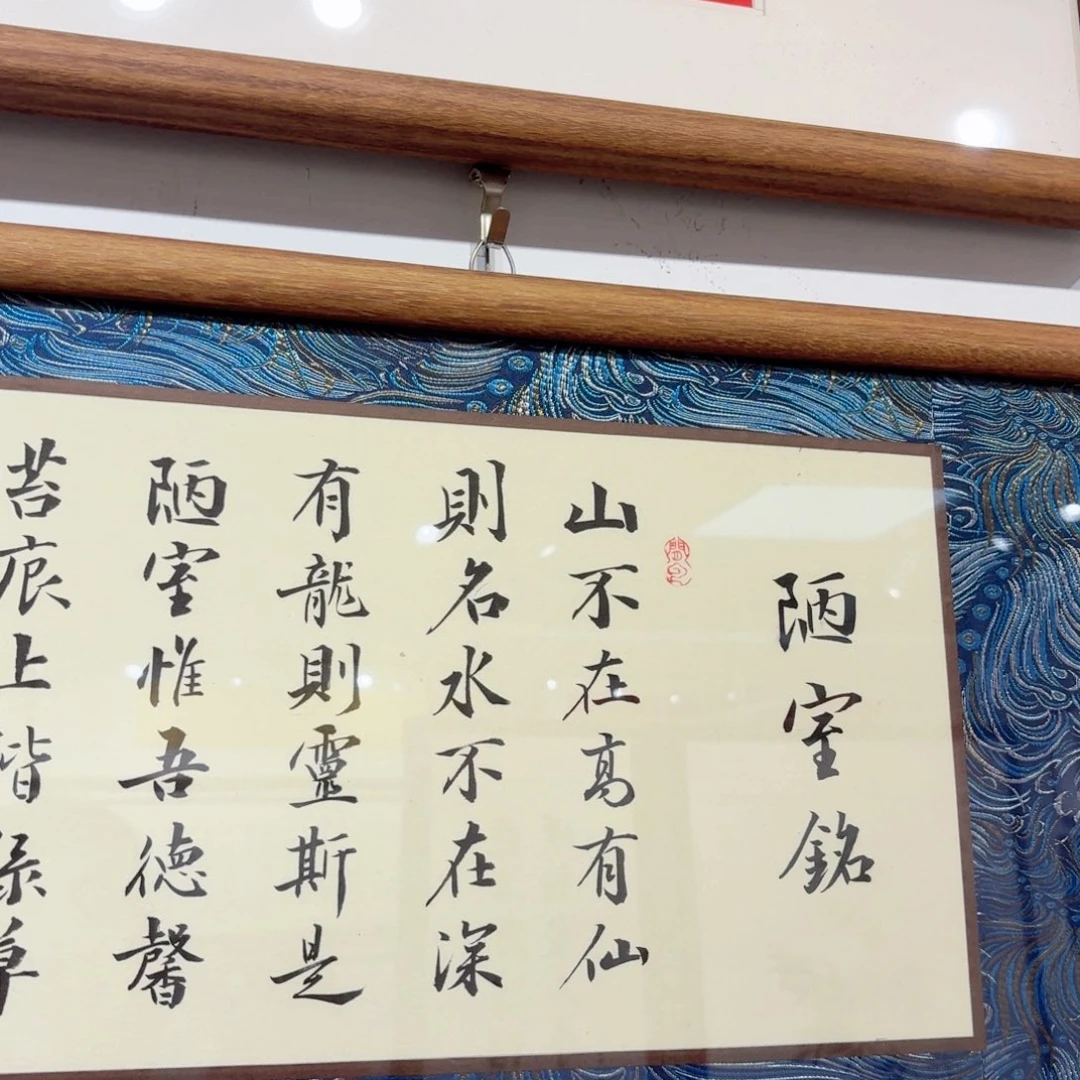 陋室銘
山不在高有仙
則名水不在深
有龍則靈斯是
陋室惟吾德馨
苔痕上階綠草